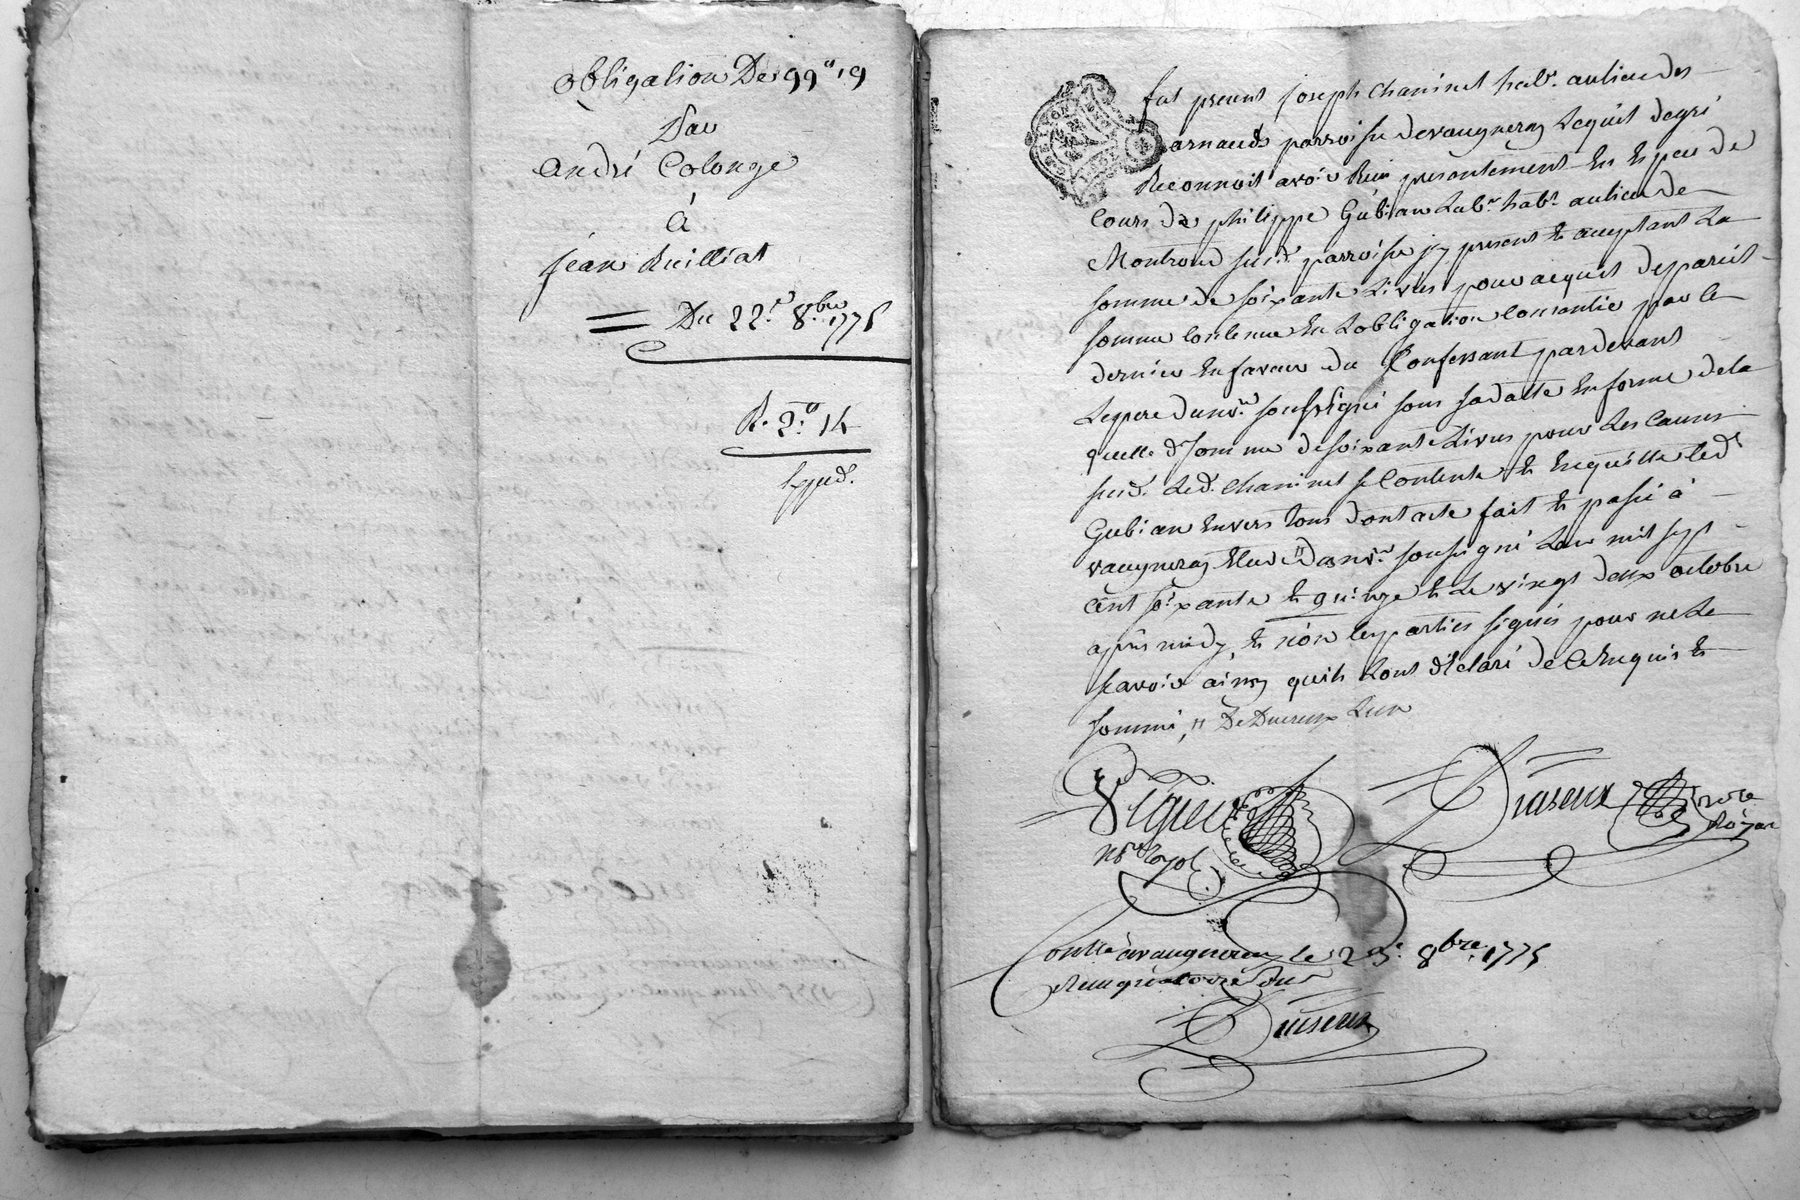 obligation De 99 " 19
Par
andré Colonge
à
jean Ruilliat
Du 22e. 8.bre 1775
R. 2." 14
exped.
fut present joseph chaninet habt. au lieu des
arnauds parroisse devaugneray Lequel degré
Reconnoit avoir Reçu presentement En Espece de
Cours de philippe Gubian Labr. habt. au lieu de
Montrond susd. parroisse jcy present Et acceptant La
somme de soixante Livres pour acquit depareil
somme Contenue En Lobligation Consentie par ce
dernier En faveur du Confessant pardevant
Lepere dunre. soussigné sous sa datte En forme dela
quelle d. somme desoixante Livres pour Les causes
susd. Led. chaninet se Contente Et En quitte led.
Gubian Envers tous dont acte fait Et passé à
vaugneray Etude du nre. soussigné Lan mil sept
cent soixante Et quinze Et Le vingt deux octobre
après midy, Et nont les parties signés pour ne Le
sçavoir ainsy quils Lont déclaré de ce Enquis Et
sommé, " De Ducreux Lun
nore. Royal
Ducreux
nore
Royal
Contlé àvaugneray le 23e. 8bre. 1775
Reçu quatorze sous
Ducreux